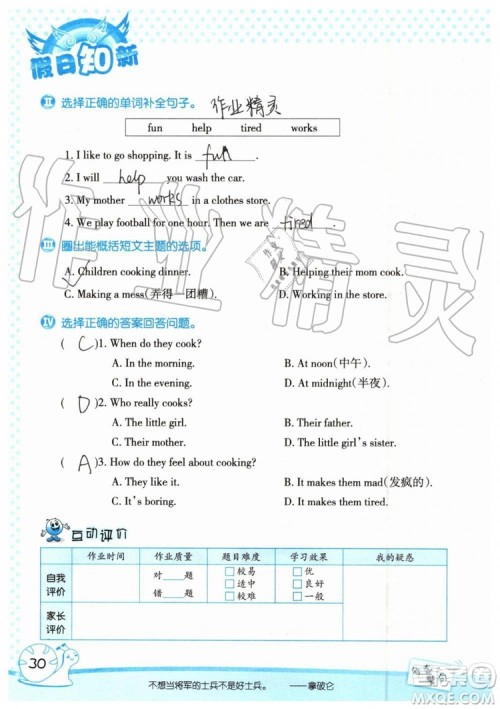 假日知新
Ⅱ 选择正确的单词补全句子。 作业精灵
fun help tired works
1. I like to go shopping. It is fun.
2. I will help you wash the car.
3. My mother works in a clothes store.
4. We play football for one hour. Then we are tired.
Ⅲ 圈出能概括短文主题的选项。
A. Children cooking dinner. B. Helping their mom cook.
C. Making a mess(弄得一团糟). D. Working in the store.
Ⅳ 选择正确的答案回答问题。
( C )1. When do they cook?
A. In the morning. B. At noon(中午).
C. In the evening. D. At midnight(半夜).
( D )2. Who really cooks?
A. The little girl. B. Their father.
C. Their mother. D. The little girl's sister.
( A )3. How do they feel about cooking?
A. They like it. B. It makes them mad(发疯的).
C. It's boring. D. It makes them tired.
互动评价
作业时间 作业质量 题目难度 学习效果 我的疑惑
自我评价 对____题 错____题 □较易 □适中 □较难 □优 □良好 □一般
家长评价
30
不想当将军的士兵不是好士兵。 ——拿破仑
作业精灵
MXQE.COM